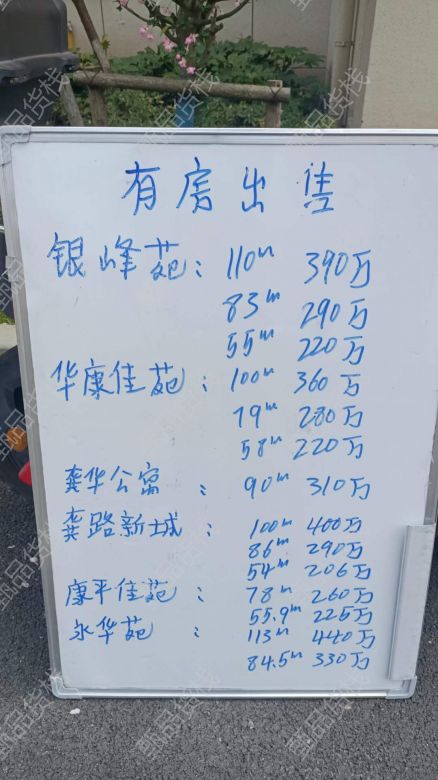 有房出售
银峰苑：110m 390万
83m 290万
55m 220万
华康佳苑：100m 360万
79m 280万
58m 220万
龚华公寓：90m 310万
龚路新城：100m 400万
86m 290万
54m 206万
康平佳苑：78m 260万
55.9m 225万
永华苑：113m 440万
84.5m 330万
甄品货栈